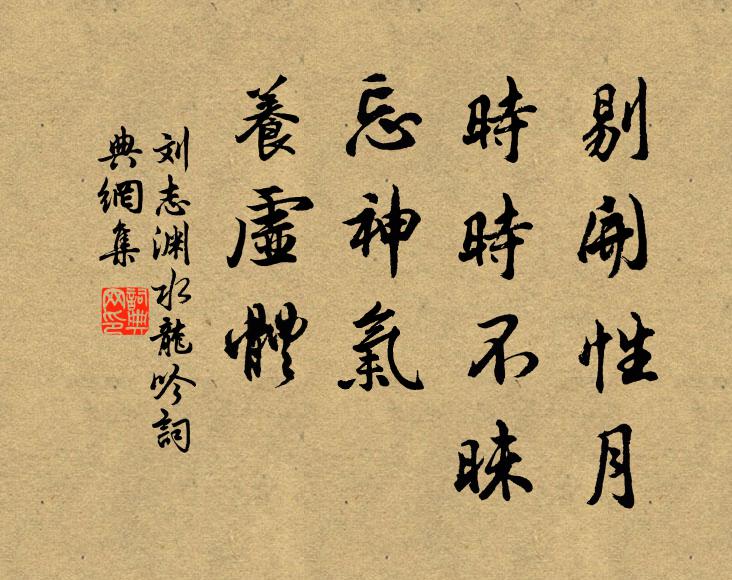 剔開性月
時時不昧
忘神氣
養虛體
刘志渊水龍吟詞
典網集
詞典
网印